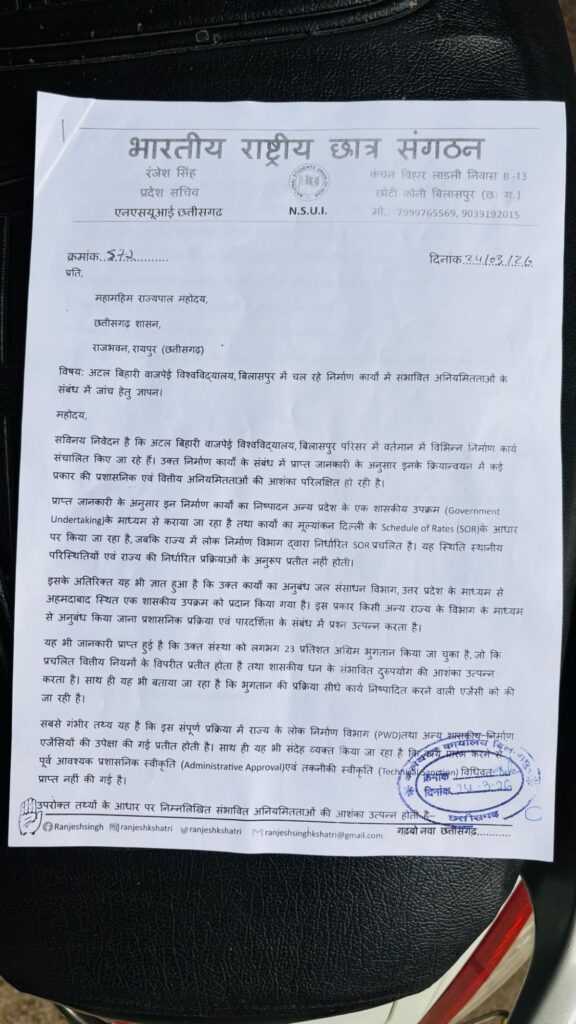 भारतीय राष्ट्रीय छात्र संगठन
रंजेश सिंह
प्रदेश सचिव
एनएसयूआई छत्तीसगढ़
N.S.U.I.
कंचन विहार लाडली निवास B-13
छोटी कोनी बिलासपुर (छ. ग.)
मो.. 7999765569, 9039192015
क्रमांक. 572..........
दिनांक 24/03/26
प्रति,
महामहिम राज्यपाल महोदय,
छत्तीसगढ़ शासन,
राजभवन, रायपुर (छत्तीसगढ़)
विषय: अटल बिहारी वाजपेई विश्वविद्यालय, बिलासपुर में चल रहे निर्माण कार्यों में संभावित अनियमितताओं के
संबंध में जांच हेतु ज्ञापन।
महोदय,
सविनय निवेदन है कि अटल बिहारी वाजपेई विश्वविद्यालय, बिलासपुर परिसर में वर्तमान में विभिन्न निर्माण कार्य
संचालित किए जा रहे हैं। उक्त निर्माण कार्यों के संबंध में प्राप्त जानकारी के अनुसार इनके क्रियान्वयन में कई
प्रकार की प्रशासनिक एवं वित्तीय अनियमितताओं की आशंका परिलक्षित हो रही है।
प्राप्त जानकारी के अनुसार इन निर्माण कार्यों का निष्पादन अन्य प्रदेश के एक शासकीय उपक्रम (Government
Undertaking)के माध्यम से कराया जा रहा है तथा कार्यों का मूल्यांकन दिल्ली के Schedule of Rates (SOR)के आधार
पर किया जा रहा है, जबकि राज्य में लोक निर्माण विभाग द्वारा निर्धारित SOR प्रचलित है। यह स्थिति स्थानीय
परिस्थितियों एवं राज्य की निर्धारित प्रक्रियाओं के अनुरूप प्रतीत नहीं होती।
इसके अतिरिक्त यह भी ज्ञात हुआ है कि उक्त कार्यों का अनुबंध जल संसाधन विभाग, उत्तर प्रदेश के माध्यम से
अहमदाबाद स्थित एक शासकीय उपक्रम को प्रदान किया गया है। इस प्रकार किसी अन्य राज्य के विभाग के माध्यम
से अनुबंध किया जाना प्रशासनिक प्रक्रिया एवं पारदर्शिता के संबंध में प्रश्न उत्पन्न करता है।
यह भी जानकारी प्राप्त हुई है कि उक्त संस्था को लगभग 23 प्रतिशत अग्रिम भुगतान किया जा चुका है, जो कि
प्रचलित वित्तीय नियमों के विपरीत प्रतीत होता है तथा शासकीय धन के संभावित दुरुपयोग की आशंका उत्पन्न
करता है। साथ ही यह भी बताया जा रहा है कि भुगतान की प्रक्रिया सीधे कार्य निष्पादित करने वाली एजेंसी को की
जा रही है।
सबसे गंभीर तथ्य यह है कि इस संपूर्ण प्रक्रिया में राज्य के लोक निर्माण विभाग (PWD)तथा अन्य शासकीय निर्माण
एजेंसियों की उपेक्षा की गई प्रतीत होती है। साथ ही यह भी संदेह व्यक्त किया जा रहा है कि कार्य प्रारंभ करने से
पूर्व आवश्यक प्रशासनिक स्वीकृति (Administrative Approval)एवं तकनीकी स्वीकृति (Technical Sanction) विधिवत
प्राप्त नहीं की गई है।
क्रमांक
दिनांक 24-3-26
छत्तीसगढ़
उपरोक्त तथ्यों के आधार पर निम्नलिखित संभावित अनियमितताओं की आशंका उत्पन्न होती है--
Ranjeshsingh ranjeshkshatri ranjeshkshatri ranjeshsinghkshatri@gmail.com
गढ़बो नवा छत्तीसगढ़..........